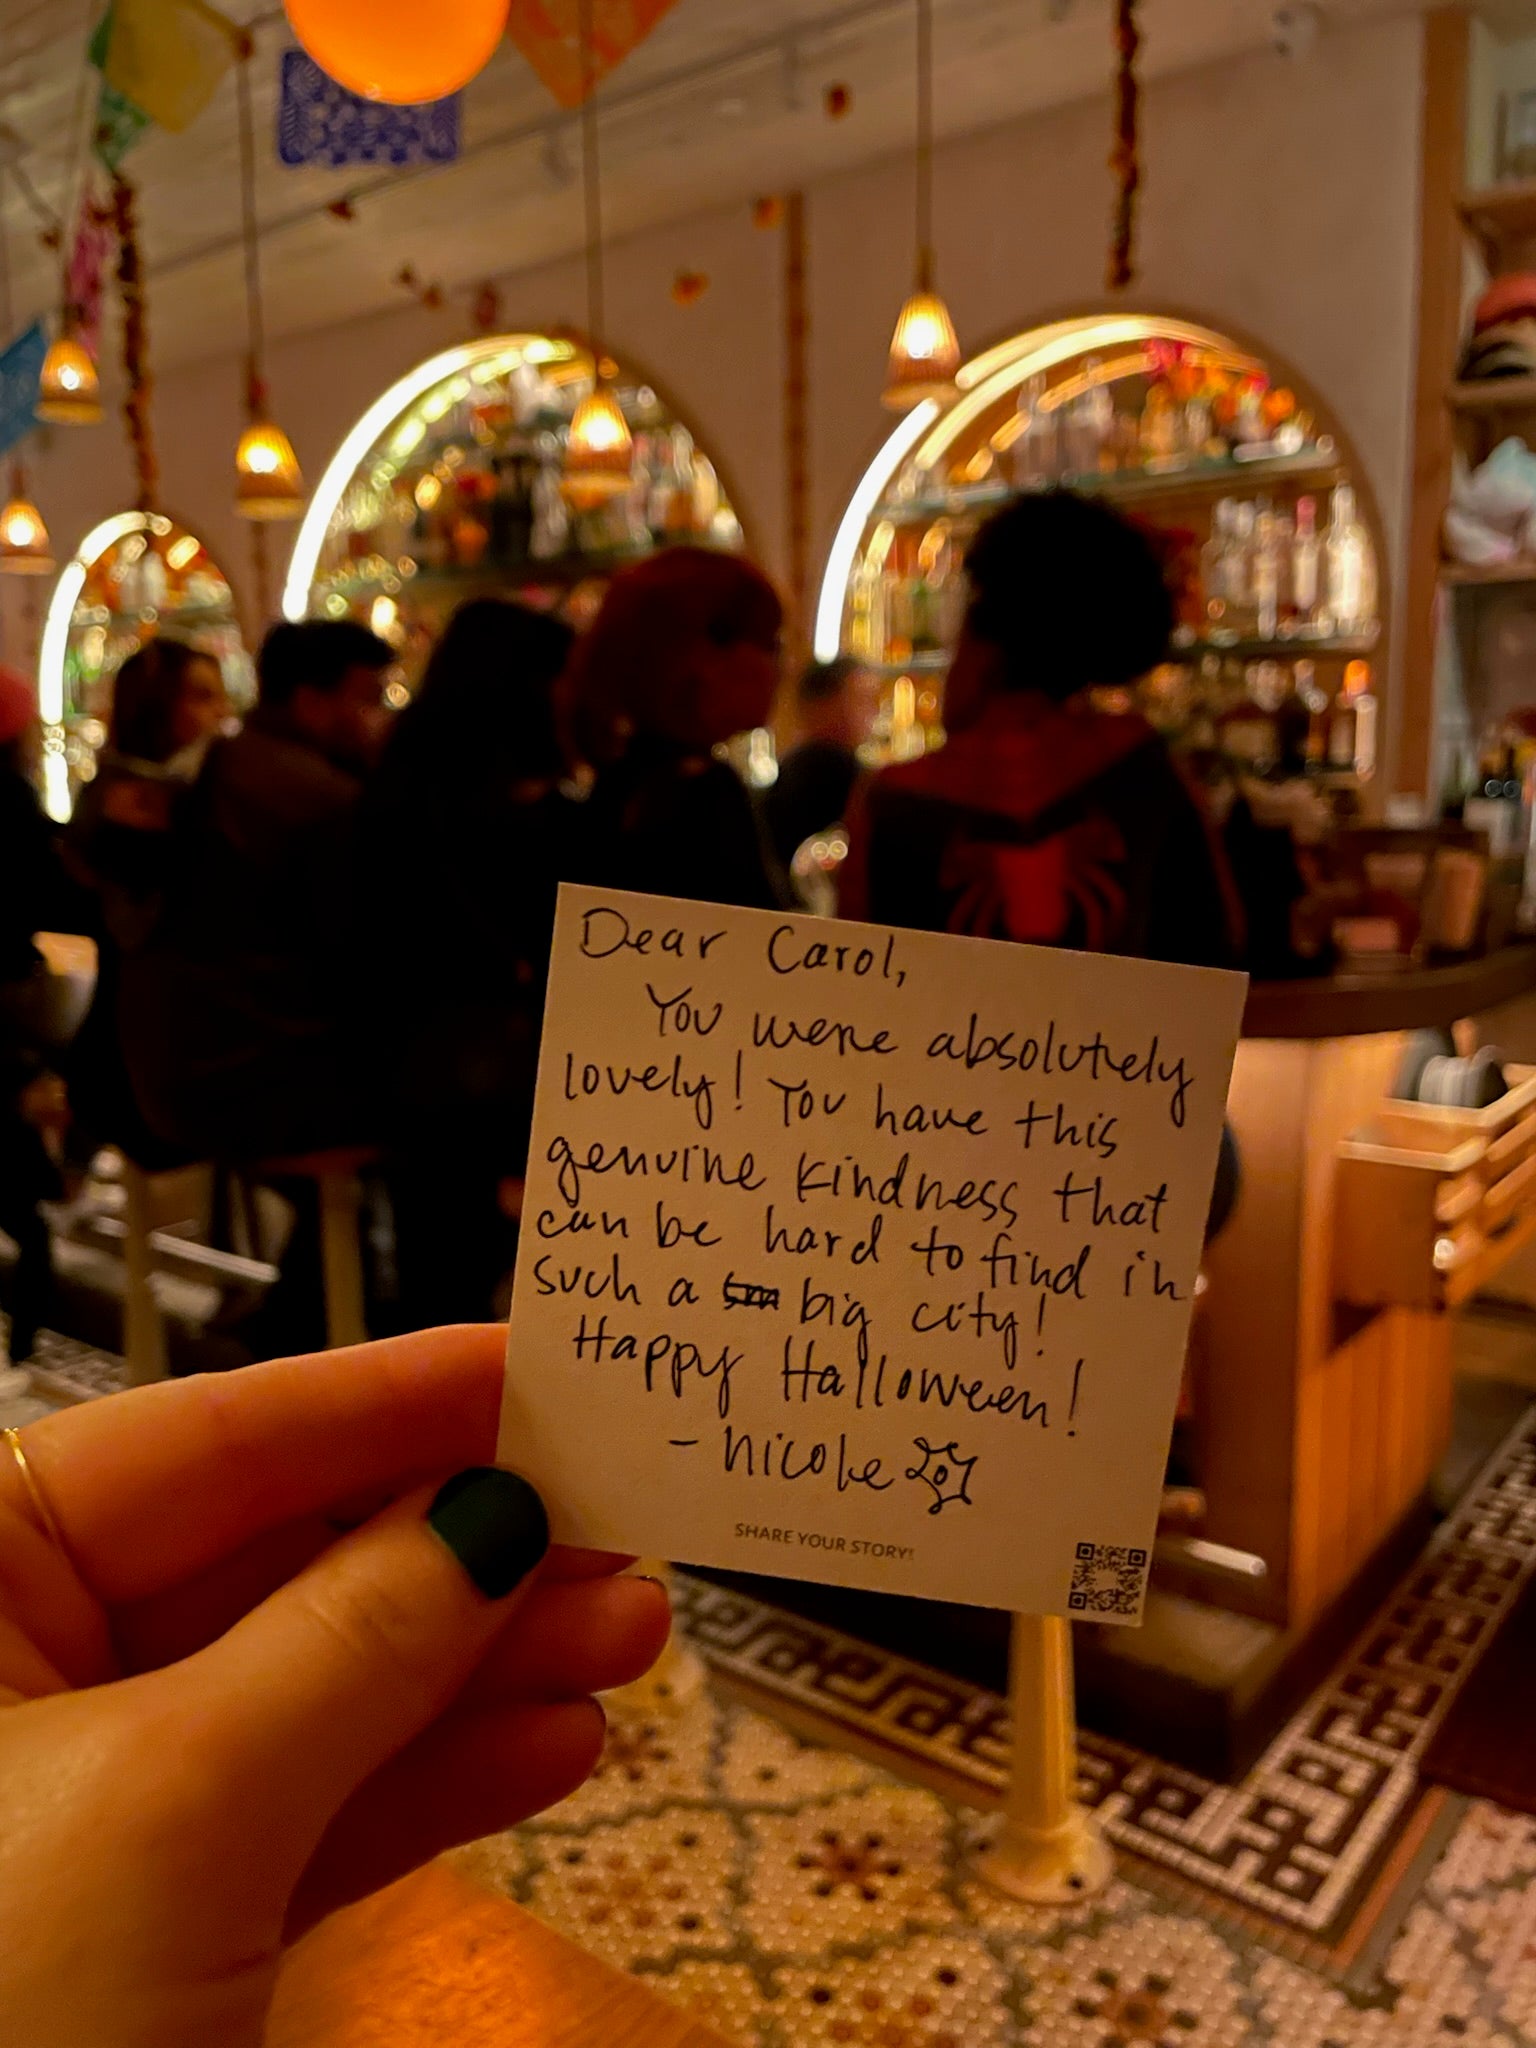 Dear Carol,
You were absolutely
lovely! You have this
genuine kindness that
can be hard to find in
such a big city!
Happy Halloween!
- Nicole
SHARE YOUR STORY!